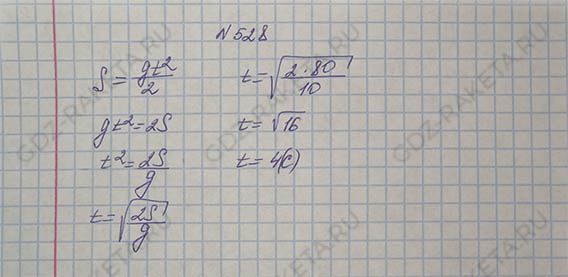 N528
S = gt²/2
gt² = 2S
t² = 2S/g
t = √(2S/g)
t = √(2·80/10)
t = √16
t = 4(с)
GDZ-RAKETA.RU
GDZ-RAKETA.RU
GDZ-RAKETA.RU
GDZ-RAKETA.RU